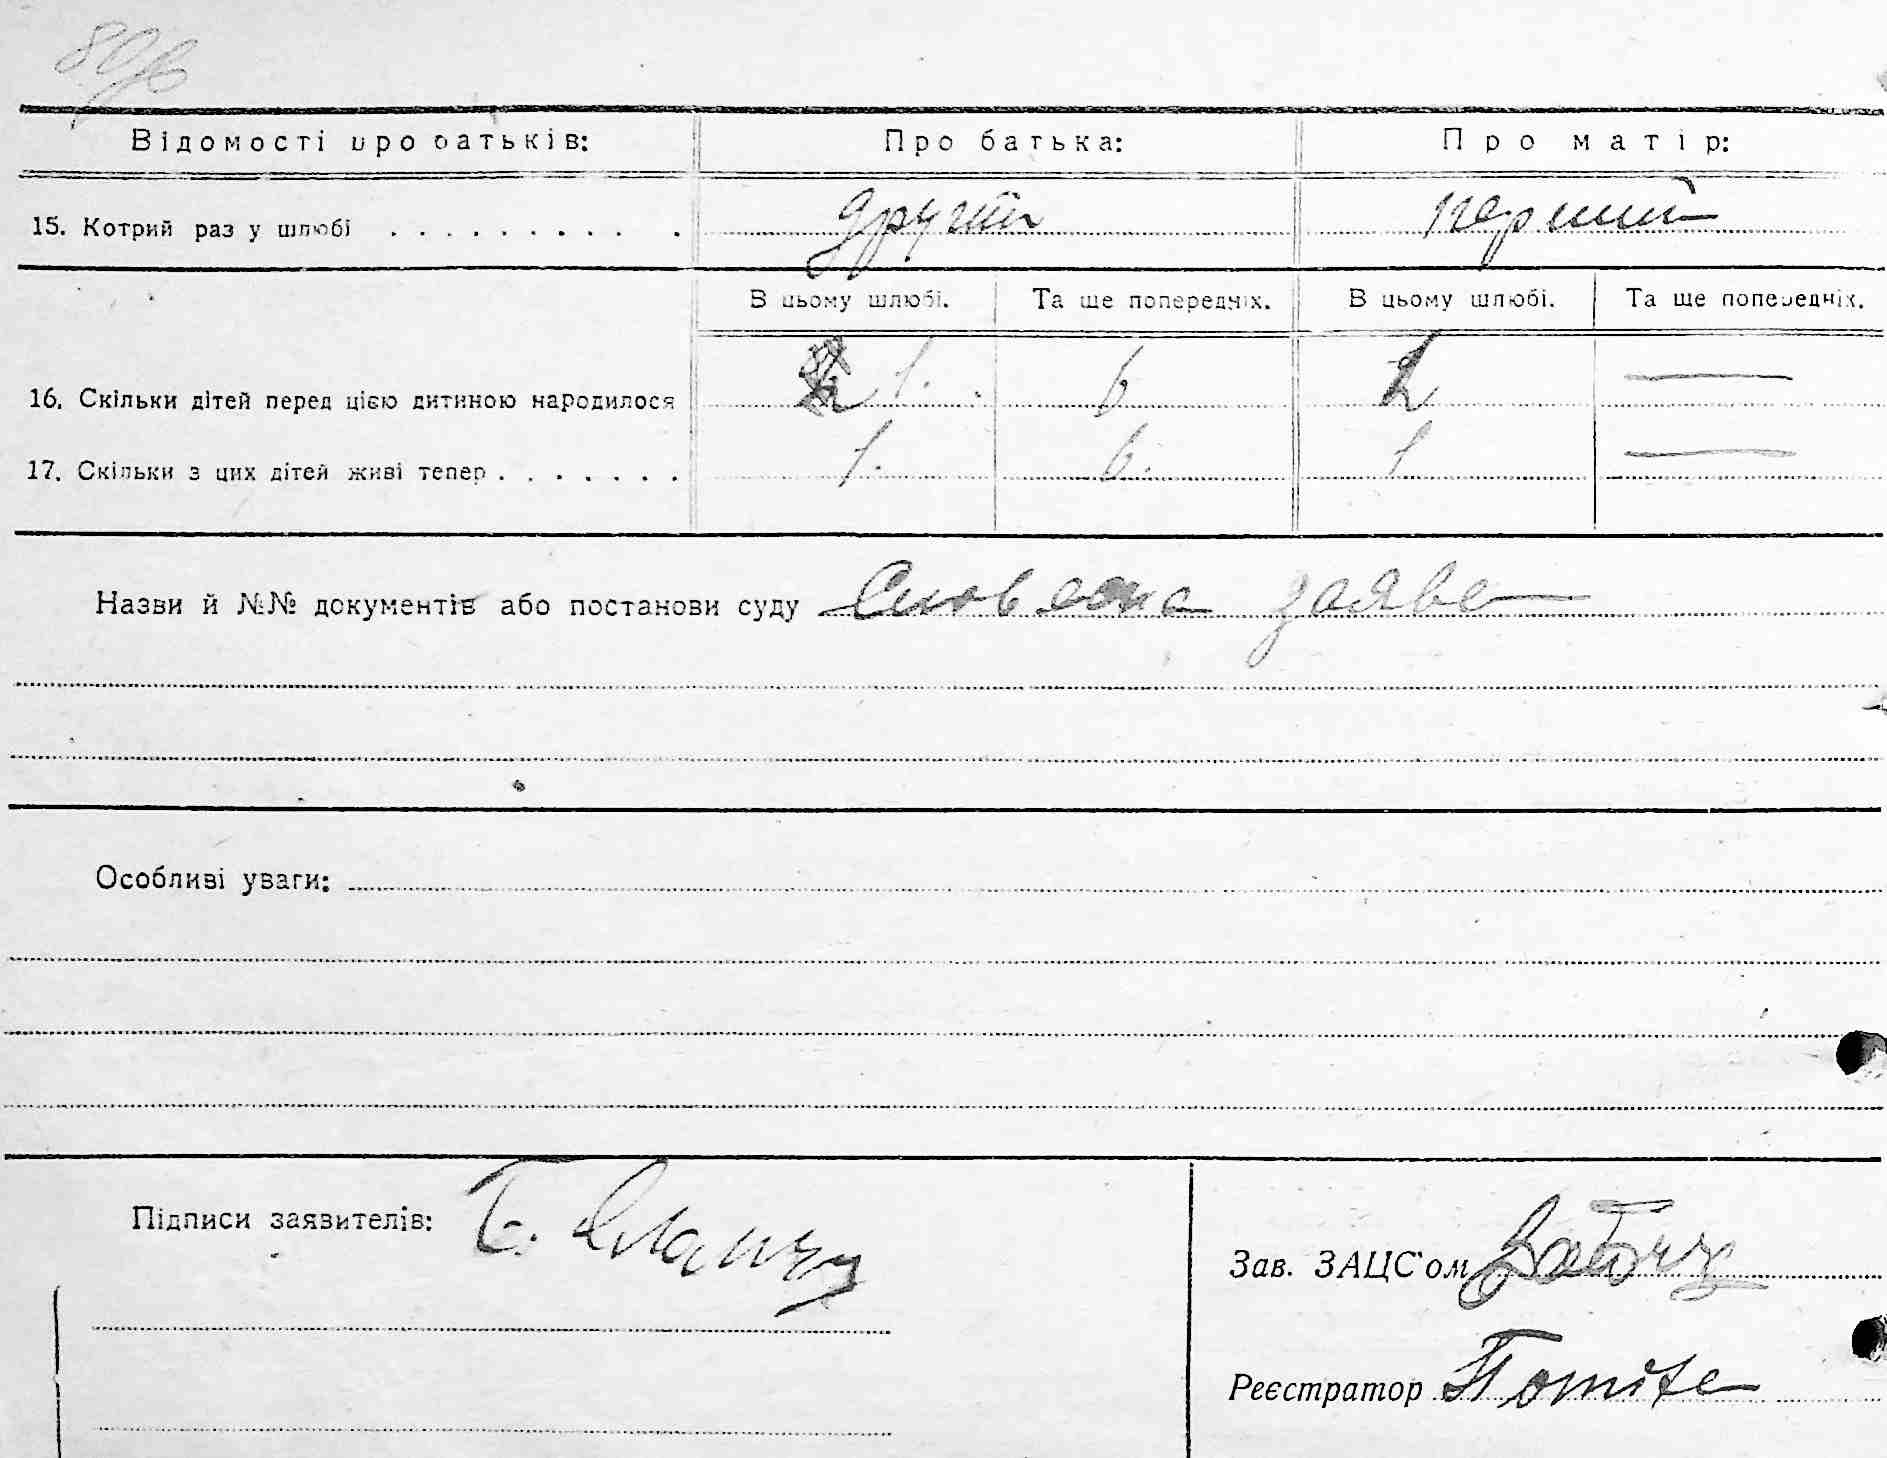 80
Відомості про батьків: Про батька: Про матір:
15. Котрий раз у шлюбі . . . . . . . . . . . другий перший
В цьому шлюбі. Та ще попередніх. В цьому шлюбі. Та ще попередніх.
16. Скільки дітей перед цією дитиною народилося 1. 6 2 —
17. Скільки з цих дітей живі тепер . . . . . . . 1. 6. 1 —
Назви й №№ документів або постанови суду Словесна заява
Особливі уваги:
Підписи заявителів:
Зав. ЗАЦС'ом
Реєстратор